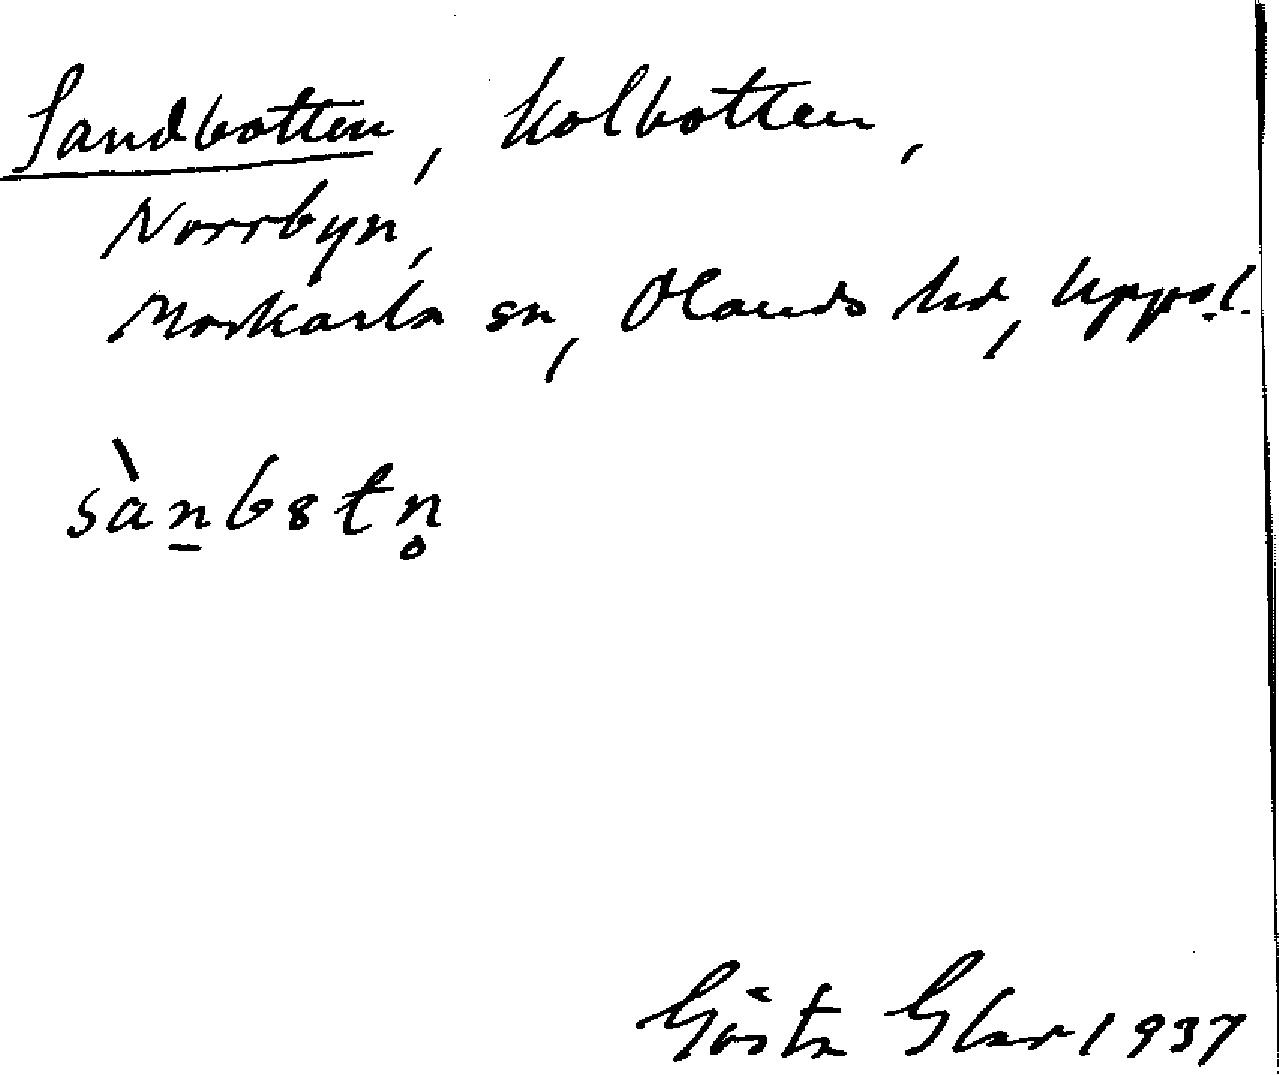 Sandbotten, kolbotten,
Norrbyn,
Morkarla sn, Olands hd, Uppl.
sànbstn̥
Gösta Glas 1937